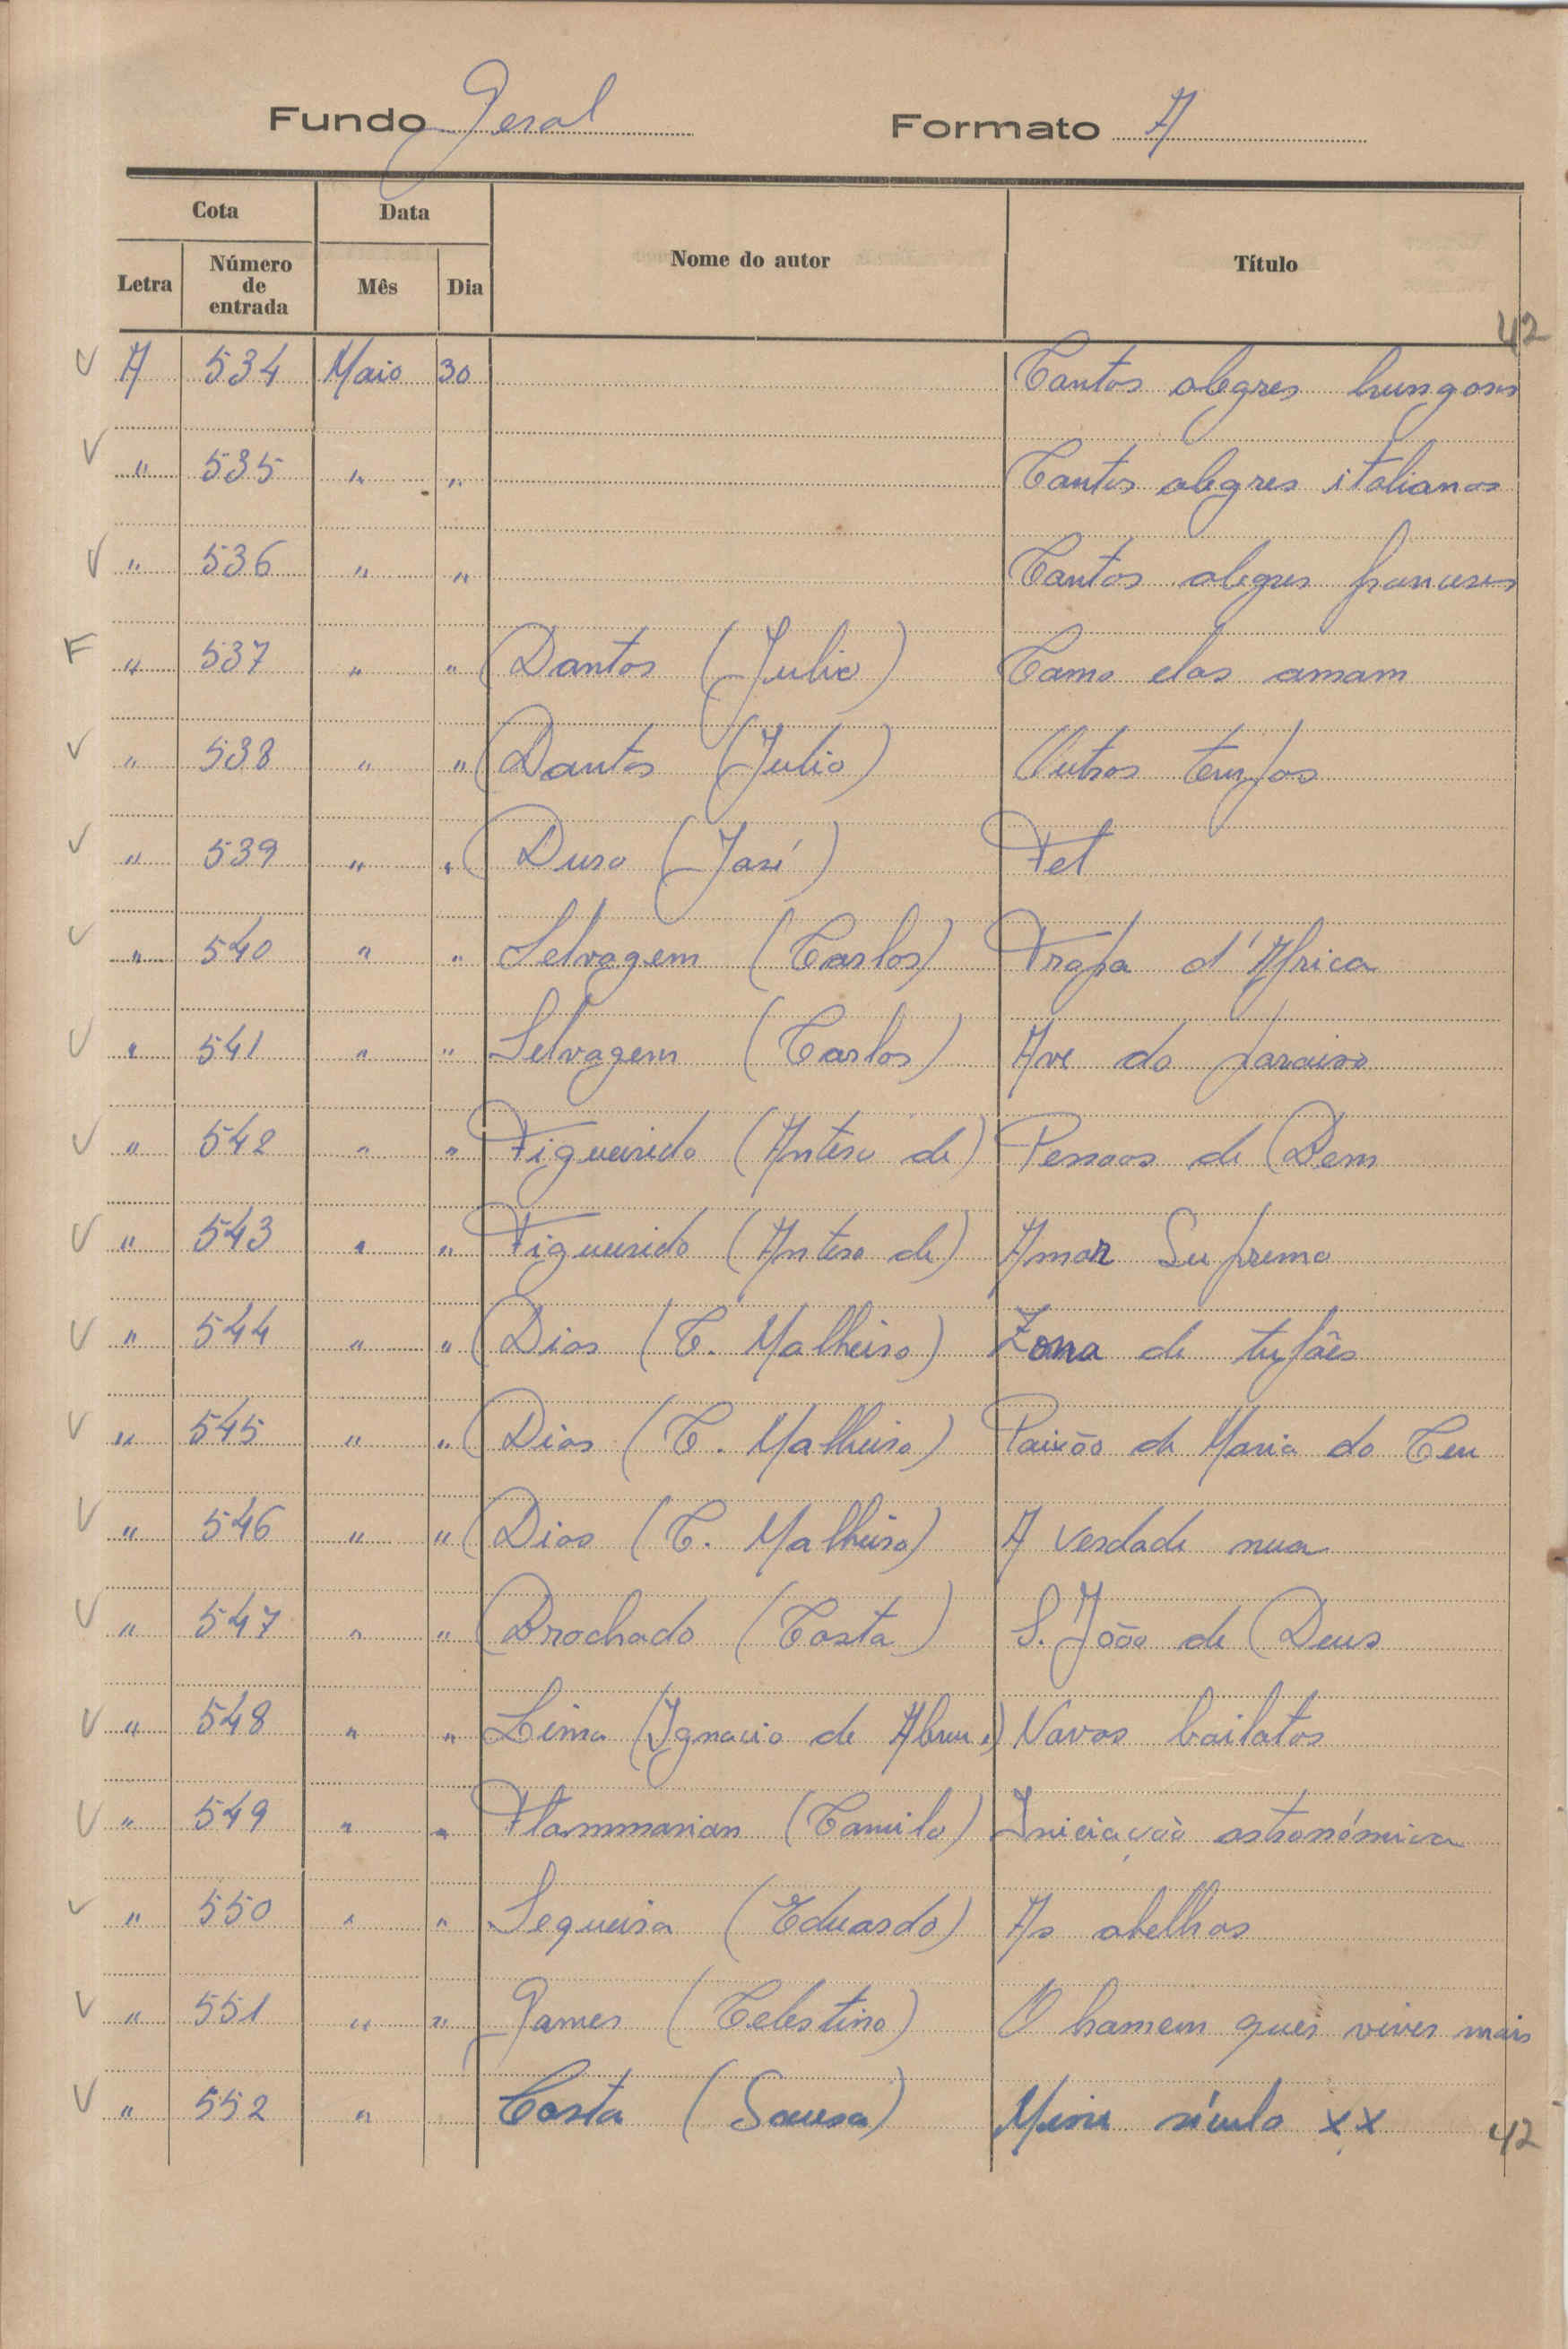 Fundo Geral Formato A
Cota Data Nome do autor Título
Letra Número de entrada Mês Dia
42
V A 534 Maio 30 Contos alegres hungaros
V " 535 " " Contos alegres italianos
V " 536 " " Contos alegres franceses
F " 537 " " Dantas (Julio) Como elas amam
V " 538 " " Dantas (Julio) Outros tempos
V " 539 " " Duro (José) Fel
V " 540 " " Selvagem (Carlos) Tropa d'Africa
V " 541 " " Selvagem (Carlos) Ave do paraiso
V " 542 " " Figueiredo (Antero de) Pessoas de Bem
V " 543 " " Figueiredo (Antero de) Amor Supremo
V " 544 " " Dias (C. Malheiro) Zona de tufões
V " 545 " " Dias (C. Malheiro) Paixão de Maria do Ceu
V " 546 " " Dias (C. Malheiro) A verdade nua
V " 547 " " Brochado (Costa) S. João de Deus
V " 548 " " Lima (Ignacio de Abreu e) Novos bailatos
V " 549 " " Flammarion (Camilo) Iniciação astronómica
V " 550 " " Sequeira (Eduardo) As abelhas
V " 551 " " Gomes (Celestino) O homem quer viver mais
V " 552 " Costa (Sousa) século XX
42